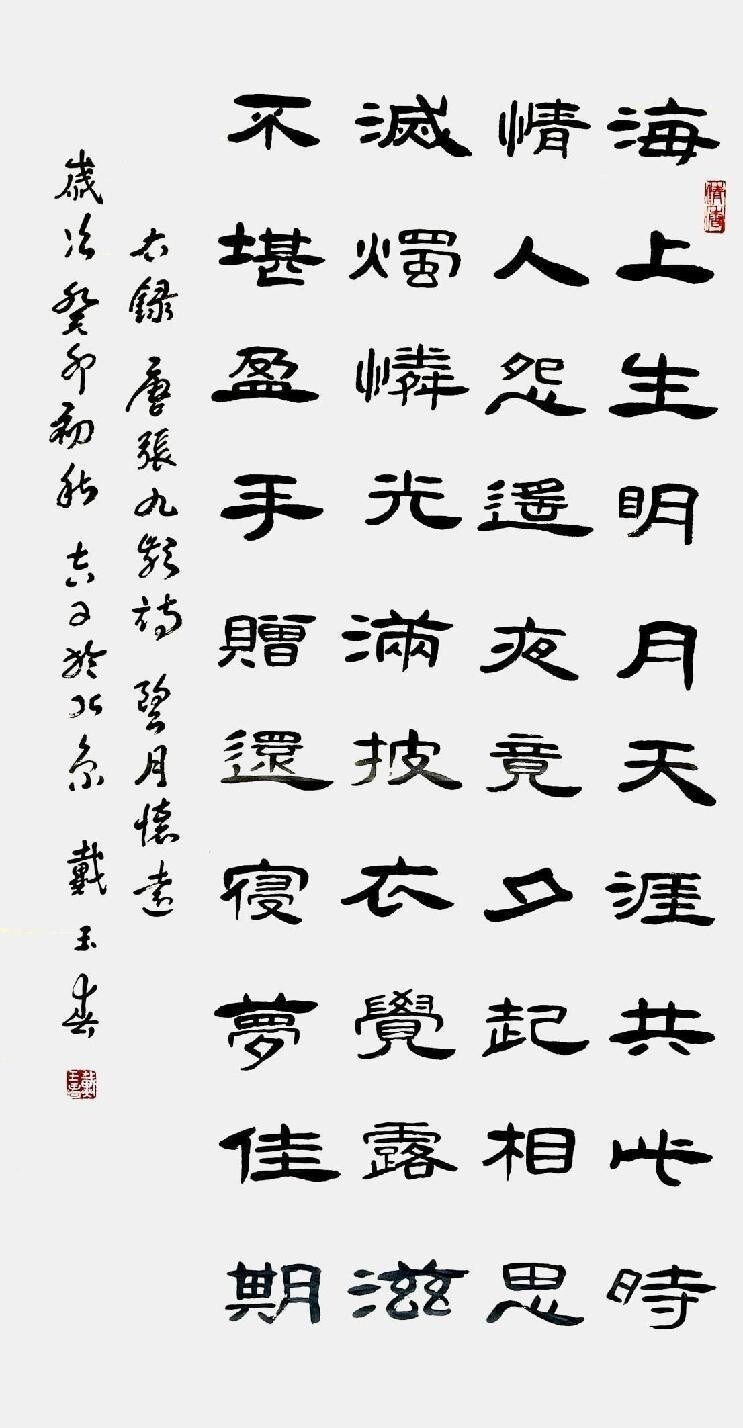 海上生明月天涯共此時
情人怨遙夜竟夕起相思
滅燭憐光滿披衣覺露滋
不堪盈手贈還寢夢佳期
右録唐張九齡詩望月懷遠
歲次癸卯初秋吉日於北京戴玉春